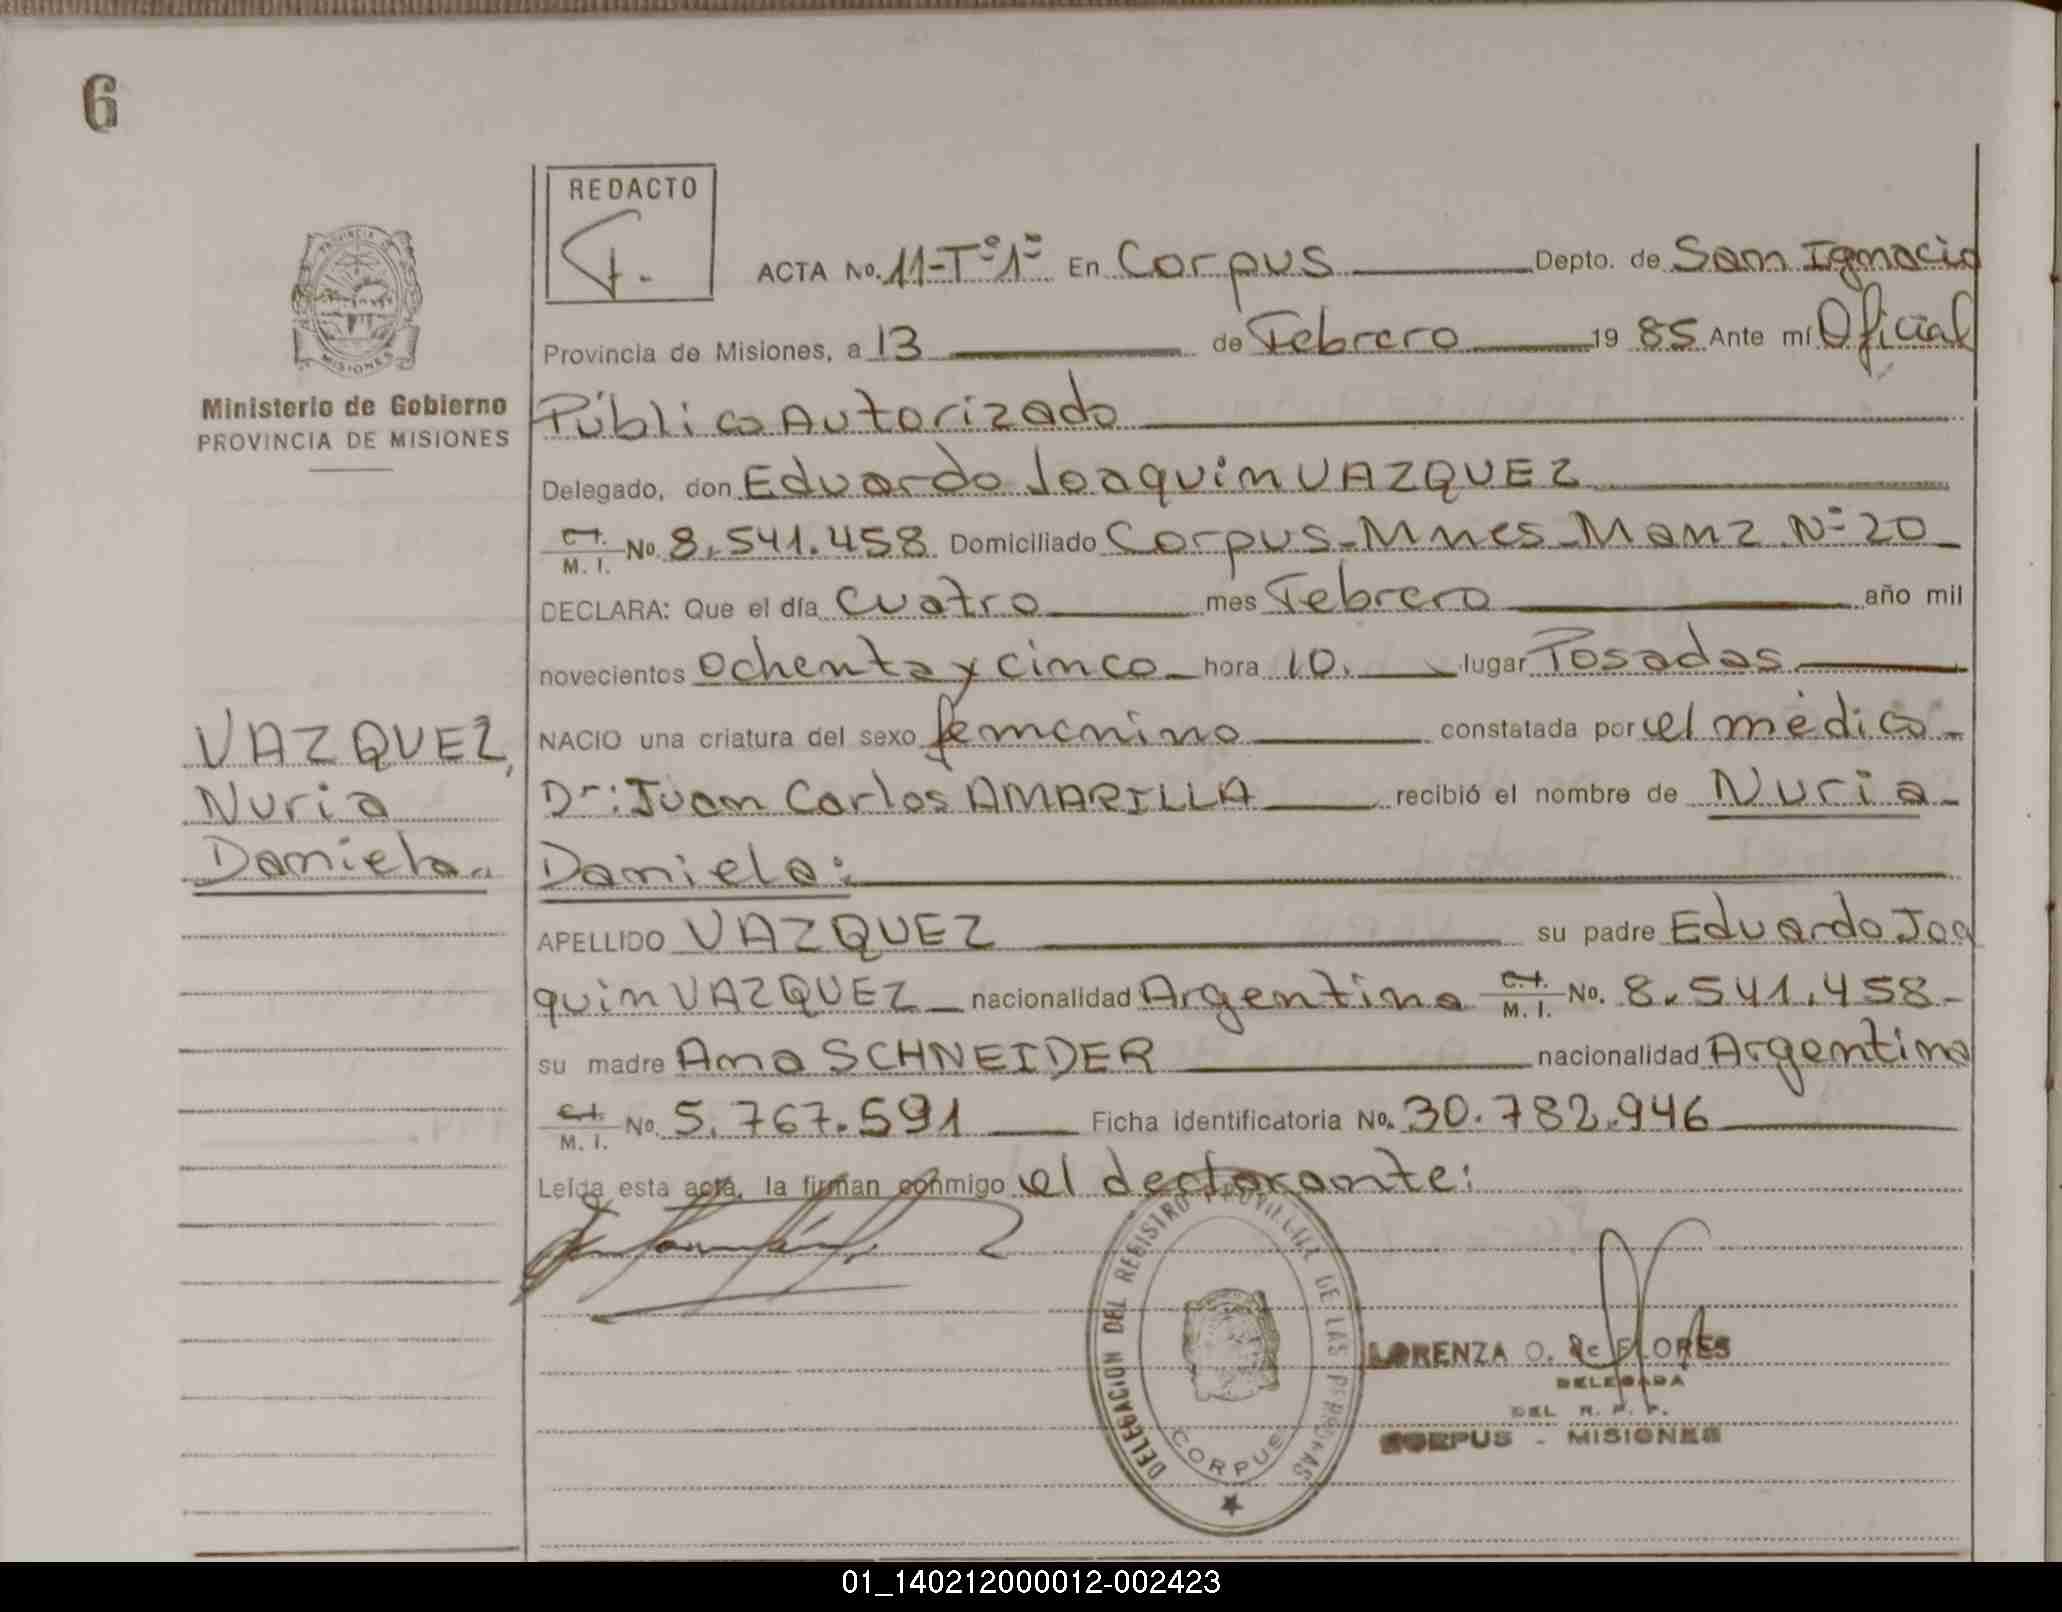 6
REDACTO
PROVINCIA DE
MISIONES
Ministerio de Gobierno
PROVINCIA DE MISIONES
ACTA No. 11-Tº1º En Corpus Depto. de San Ignacio
Provincia de Misiones, a 13 de Febrero 19 85 Ante mí Oficial
Público Autorizado
Delegado, don Eduardo Joaquin VAZQUEZ
C.I. M. I. No. 8.541.458 Domiciliado Corpus-Mnes-Manz Nº 20
DECLARA: Que el día cuatro mes Febrero año mil
novecientos ochenta y cinco hora 10. lugar Posadas
NACIO una criatura del sexo femenino constatada por el médico
Dr: Juan Carlos AMARILLA recibió el nombre de Nuria
Daniela:
APELLIDO VAZQUEZ su padre Eduardo Joa
quin VAZQUEZ nacionalidad Argentina C.I. M. I. No. 8.541.458-
su madre Ana SCHNEIDER nacionalidad Argentina
C.I. M. I. No. 5.767.591 Ficha identificatoria No. 30.782.946
Leída esta acta, la firman conmigo el declarante:
VAZQUEZ,
Nuria
Daniela.
DELEGACION DEL REGISTRO PROVINCIAL DE LAS PERSONAS
CORPUS
LORENZA O. de FLORES
DELEGADA
DEL R. P. P.
CORPUS - MISIONES
01_140212000012-002423